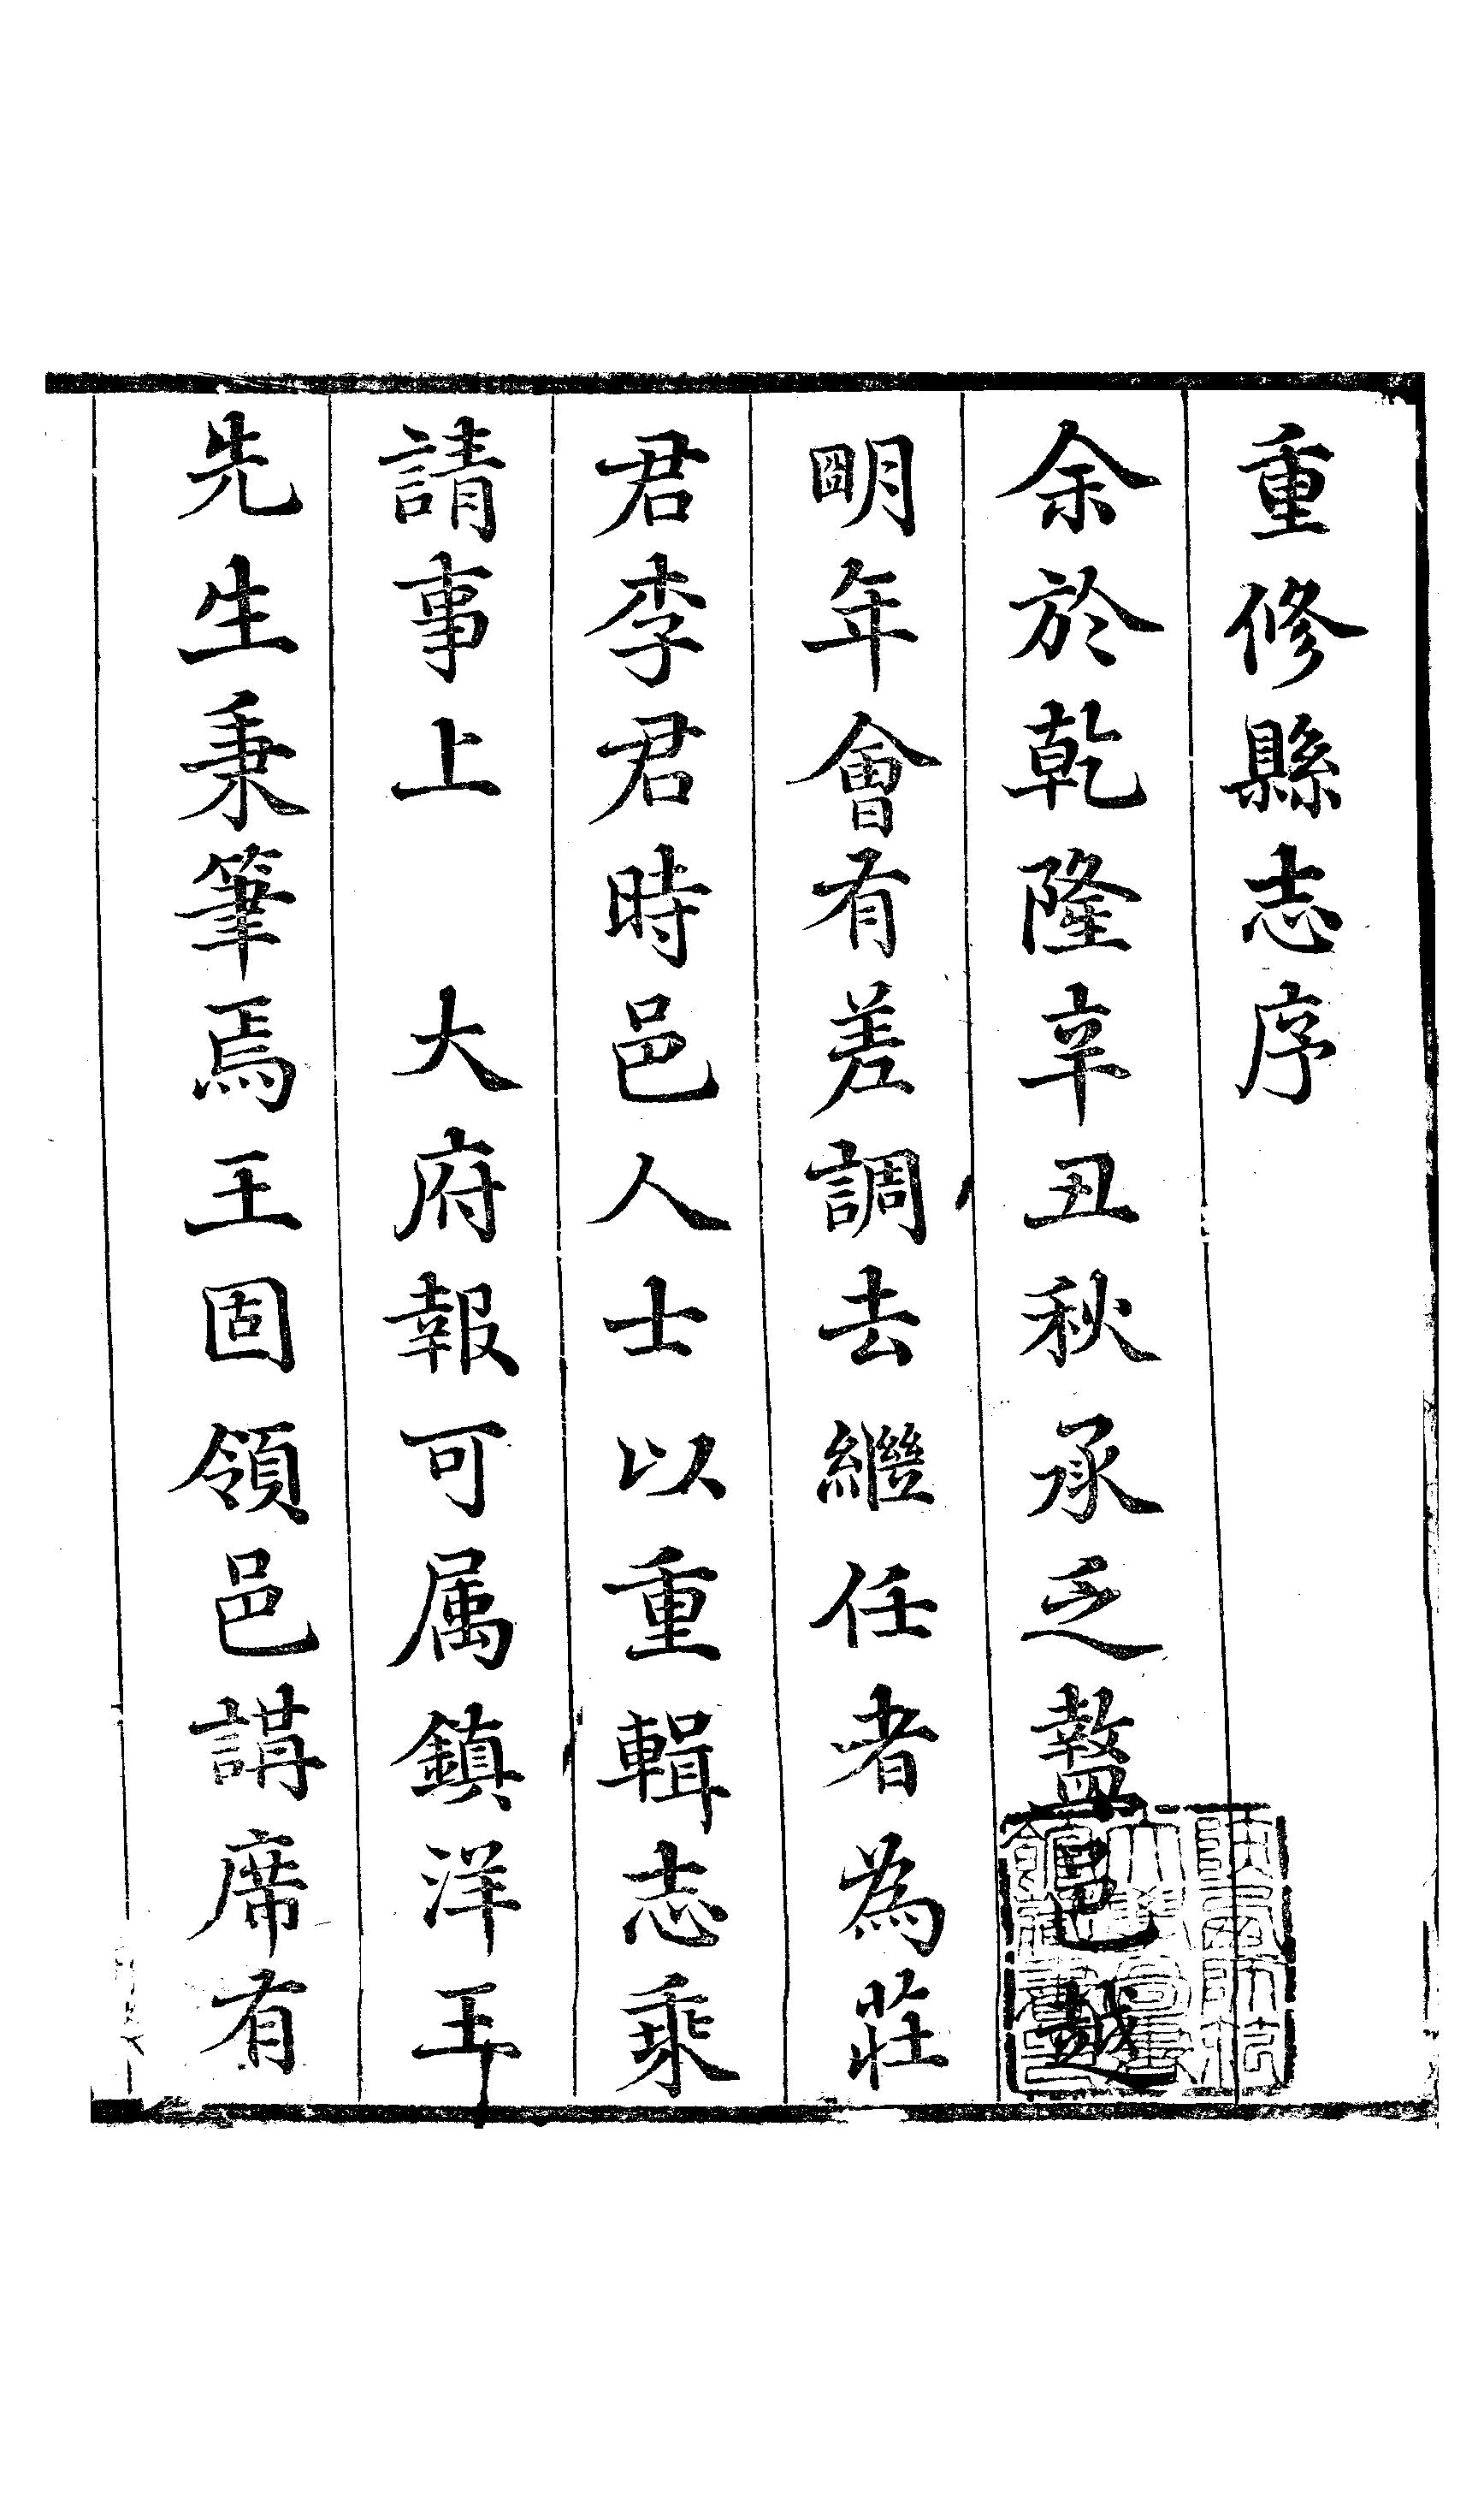 重修縣志序
余於乾隆辛丑秋承乏盩邑越
明年會有差調去繼任者為莊
君李君時邑人士以重輯志乘
請事上　大府報可属鎮洋王
先生秉筆焉王固領邑講席有